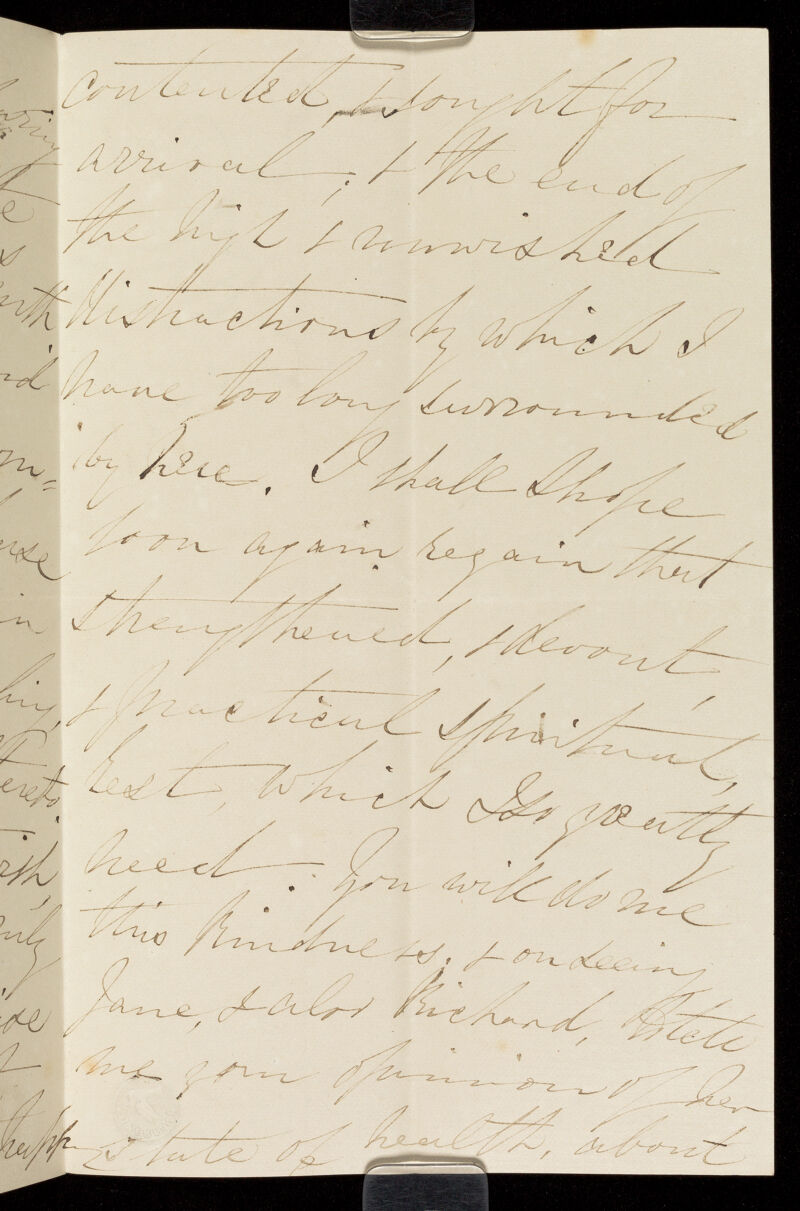 contented, & sought for
arrival; & the end of
the high & unwished
distractions by which I
have too long surrounded
by here. I shall I hope
soon again regain that
strengthened, & devout,
& practical spiritual,
Rest, which I so greatly
need. You will do me
this kindness, & on seeing
Jane, & also Richard, state
me your opinion of her
state of health, about